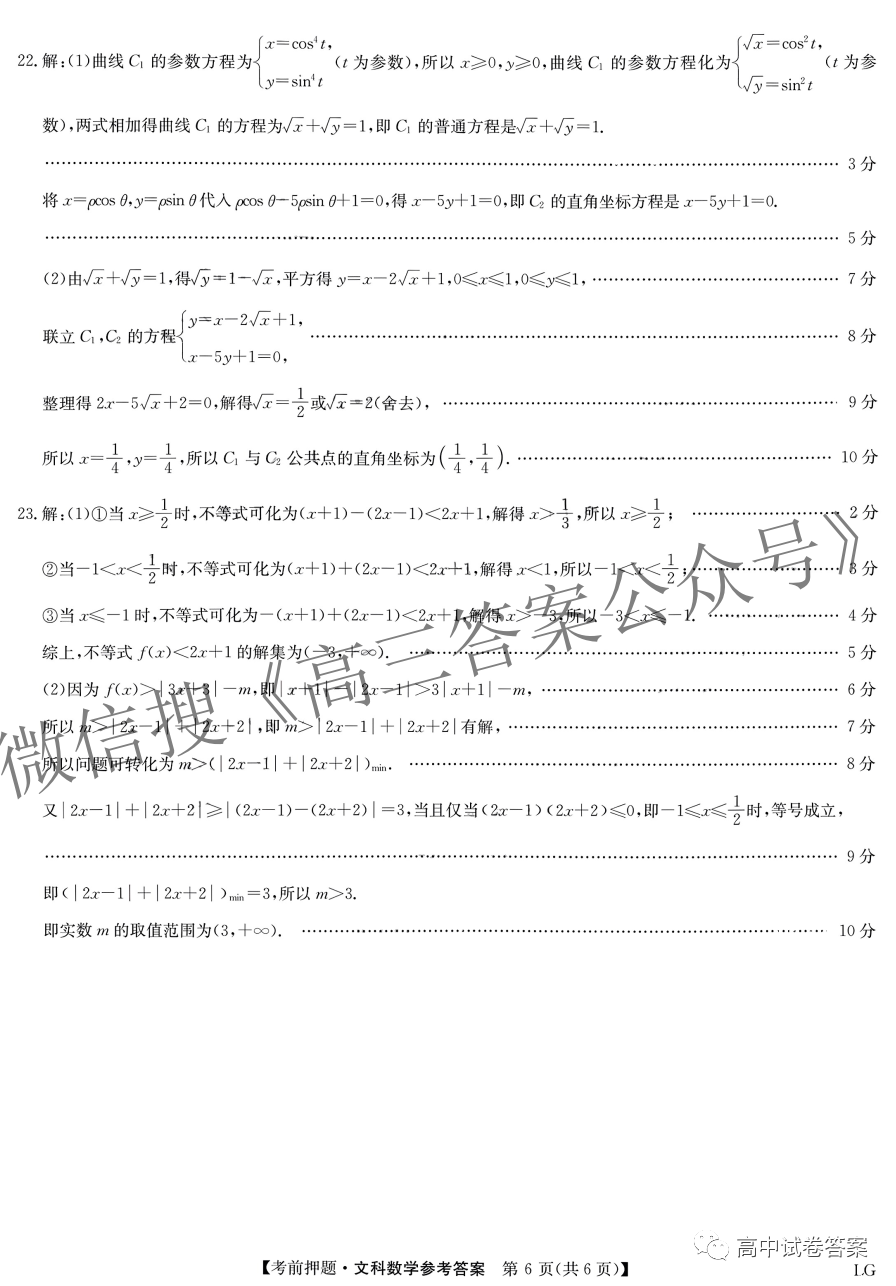 22. 解:(1)曲线 C₁ 的参数方程为{x=cos⁴t, y=sin⁴t (t 为参数),所以 x≥0,y≥0,曲线 C₁ 的参数方程化为{√x=cos²t, √y=sin²t (t 为参
数),两式相加得曲线 C₁ 的方程为√x+√y=1,即 C₁ 的普通方程是√x+√y=1.
…… 3 分
将 x=ρcos θ,y=ρsin θ代入 ρcos θ−5ρsin θ+1=0,得 x−5y+1=0,即 C₂ 的直角坐标方程是 x−5y+1=0.
…… 5 分
(2)由√x+√y=1,得√y=1−√x,平方得 y=x−2√x+1,0≤x≤1,0≤y≤1, …… 7 分
联立 C₁,C₂ 的方程{y=x−2√x+1, x−5y+1=0, …… 8 分
整理得 2x−5√x+2=0,解得√x=1/2或√x=2(舍去), …… 9 分
所以 x=1/4,y=1/4,所以 C₁ 与 C₂ 公共点的直角坐标为(1/4,1/4). …… 10 分
23. 解:(1)①当 x≥1/2时,不等式可化为(x+1)−(2x−1)<2x+1,解得 x>1/3,所以 x≥1/2; …… 2 分
②当−1<x<1/2时,不等式可化为(x+1)+(2x−1)<2x+1,解得 x<1,所以−1<x<1/2; …… 3 分
③当 x≤−1 时,不等式可化为−(x+1)+(2x−1)<2x+1,解得 x>−3,所以−3<x≤−1. …… 4 分
综上,不等式 f(x)<2x+1 的解集为(−3,+∞). …… 5 分
(2)因为 f(x)>|3x+3|−m,即|x+1|−|2x−1|>3|x+1|−m, …… 6 分
所以 m>|2x−1|+|2x+2|,即 m>|2x−1|+|2x+2|有解, …… 7 分
所以问题可转化为 m>(|2x−1|+|2x+2|)min. …… 8 分
又|2x−1|+|2x+2|≥|(2x−1)−(2x+2)|=3,当且仅当(2x−1)(2x+2)≤0,即−1≤x≤1/2时,等号成立,
…… 9 分
即(|2x−1|+|2x+2|)min=3,所以 m>3.
即实数 m 的取值范围为(3,+∞). …… 10 分
微信搜《高三答案公众号》
高中试卷答案
【考前押题·文科数学参考答案 第 6 页(共 6 页)】
LG